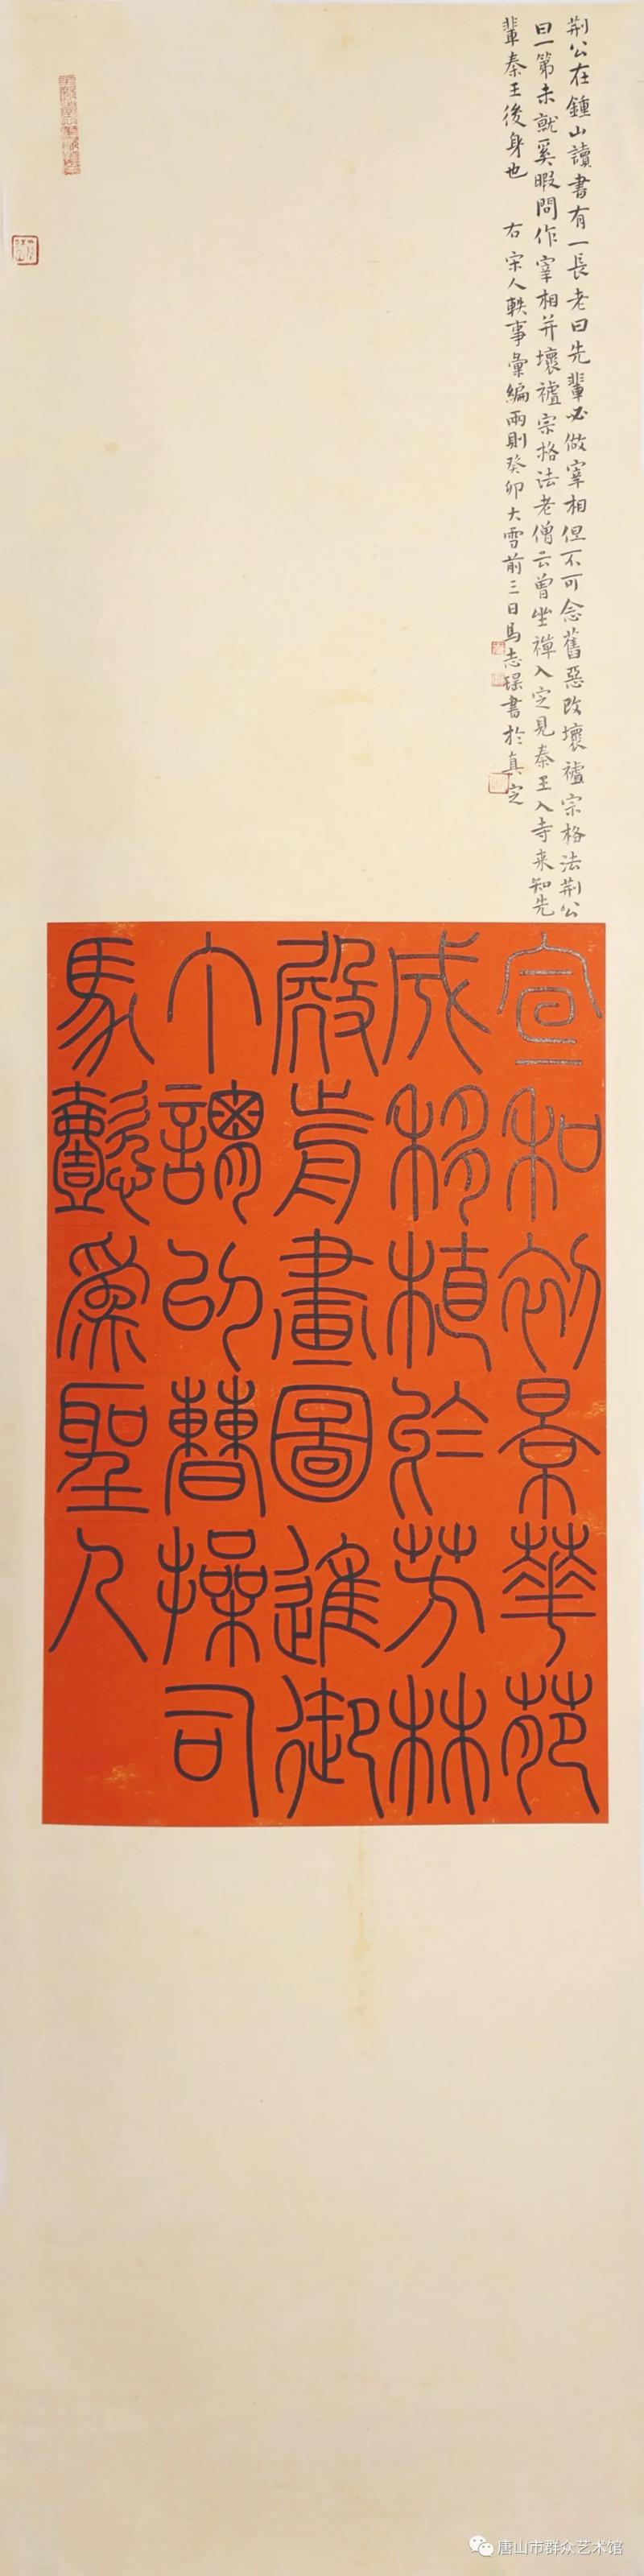 荆公在鍾山讀書有一長老曰先輩必做宰相但不可念舊惡改壞禇宗格法荆公
曰一第未就奚暇問作宰相并壞禇宗格法老僧云曾坐禪入定見秦王入寺来知先
輩秦王後身也 右宋人軼事彙編兩則癸卯大雪前三日馬志璪書於真定
宣和初景華苑
成移植於芳林
殿有畫圖進御
下謂以曹操司
馬懿爲聖人
唐山市群众艺术馆